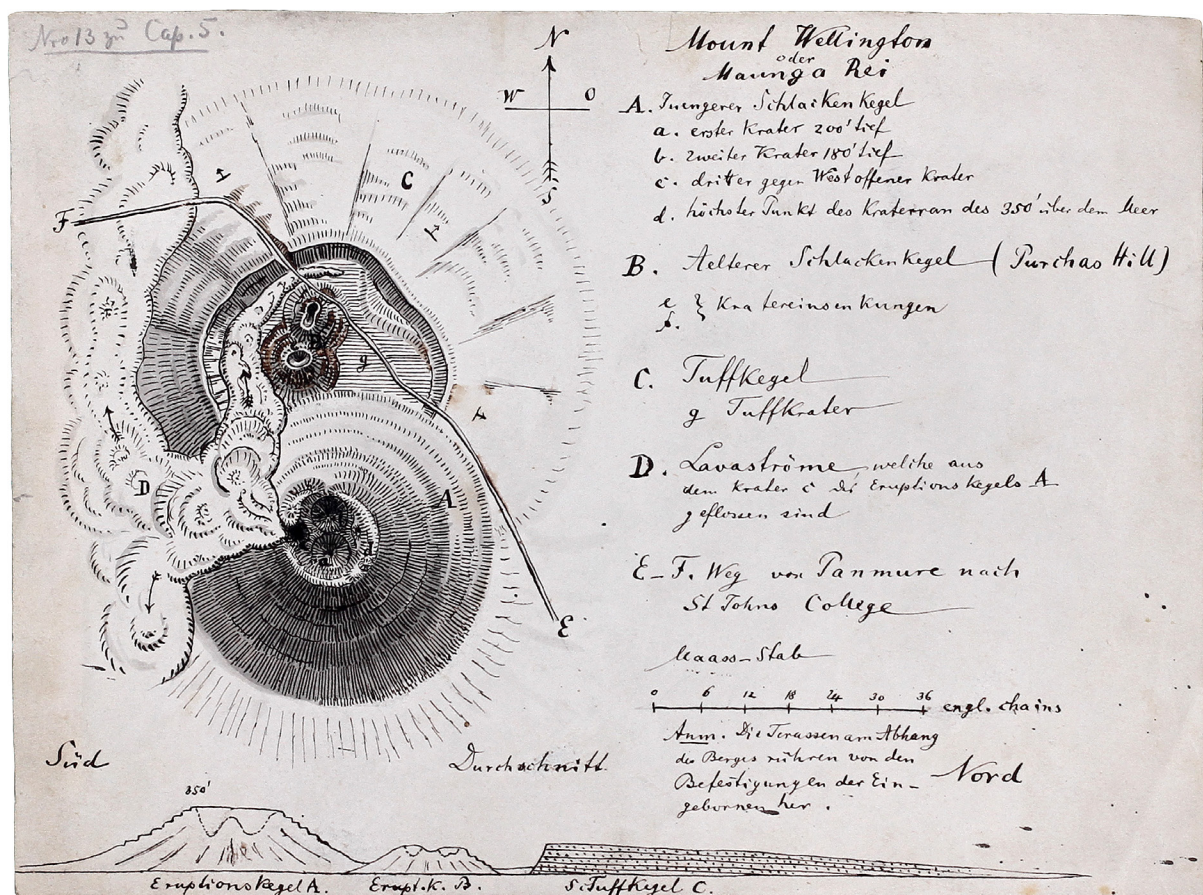 Nro 13 zu Cap. 5.
Mount Wellington
oder
Maunga Rei
N
W O
S
A. Juengerer Schlackenkegel
a. erster Krater 200' tief
b. zweiter Krater 180' tief
c. dritter gegen West offener Krater
d. höchster Punkt des Kraterrandes 350' über dem Meer
B. Aelterer Schlackenkegel (Purchas Hill)
e } Kratereinsenkungen
f.
C. Tuffkegel
g Tuffkrater
D. Lavaströme, welche aus
dem Krater c des Eruptionskegels A
geflossen sind
E–F. Weg von Panmure nach
St Johns College
Maass-Stab
0 6 12 18 24 30 36 engl. chains
Anm. Die Terassen am Abhang
des Berges rühren von den
Befestigungen der Ein-
gebornen her.
F
C
B
g
D
A
d
E
Süd
Durchschnitt
Nord
350'
Eruptionskegel A. Erupt. K. B. Tuffkegel C.